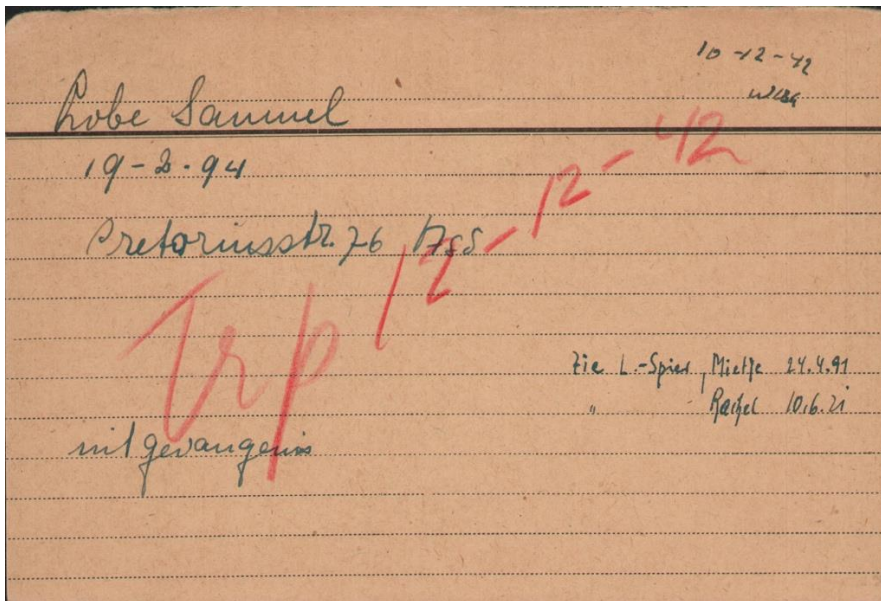 10-12-42
Lobe Samuel
19-2-94
Pretoriusstr. 76 Asd
Trp 12-12-42
Zie L.-Spier, Mietje 24.4.91
" Rachel 10.6.21
uit gevangenis